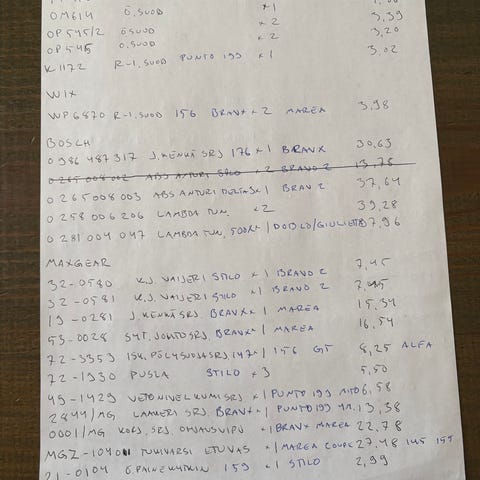 OM614 Ö.SUOD ×1
OP545/2 ÖSUOD ×2 3,39
OP545 Ö.SUOD ×2 3,20
K1172 R-1.SUOD PUNTO 199 ×1 3,02
WIX
WP6870 R-1.SUOD 156 BRAVX ×2 MAREA 3,98
BOSCH
0 986 487 317 J.KENKÄ SRJ 176 ×1 BRAVX 30,63
0 265 008 002 ABS ANTURI STILO ×2 BRAVO 2 13,75
0 265 008 003 ABS ANTURI DELTA3 ×1 BRAV 2 37,64
0 258 006 206 LAMBDA TUN. ×2 39,28
0 281 004 047 LAMBDA TUN. 500X ×1 DOBLO/GIULIETTA 37,96
MAXGEAR
32-0580 K.J. VAIJERI STILO ×1 BRAVO 2 7,45
32-0581 K.J. VAIJERI STILO ×1 BRAVO 2 7,45
19-0281 J.KENKÄ SRJ BRAVX ×1 MAREA 15,34
53-0028 SYT.JOHTO SRJ. BRAVX ×1 MAREA 16,54
72-3353 ISK.PÖLYSUOJA SRJ 147 ×1 156 GT 8,25 ALFA
72-1930 PUSLA STILO ×3 5,50
49-1429 VETONIVELKUMI SRJ ×1 PUNTO 199 MITO 6,58
2844/MG LAAKERI SRJ. BRAVX ×1 PUNTO 199 YM. 13,38
0001/MG KORJ.SRJ. OHJAUSVIPU ×1 BRAVX MAREA 22,78
TUKIVARSI ETUVAS ×1 MAREA COUPE 27,48 145 155
21-0104 Ö.PAINEKYTKIN 159 ×1 STILO 2,99